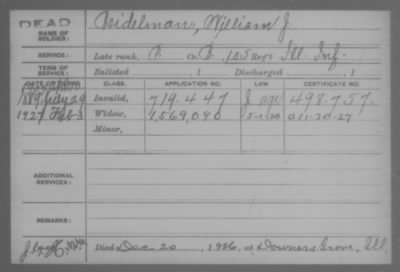 DEAD
NAME OF SOLDIER: Beidelman, William J.
SERVICE: Late rank, P. Co. B, 105 Reg't Ill Inf.
TERM OF SERVICE: Enlisted , 1 Discharged , 1
CLASS. APPLICATION NO. LAW. CERTIFICATE NO.
1889 July 29 Invalid, 719.447 498.757.
1927 Feb 3 Widow, 1,569,090 5-1-20
Minor,
ADDITIONAL SERVICES:
REMARKS:
Died Dec 20, 1926, at Downers Grove, Ill.